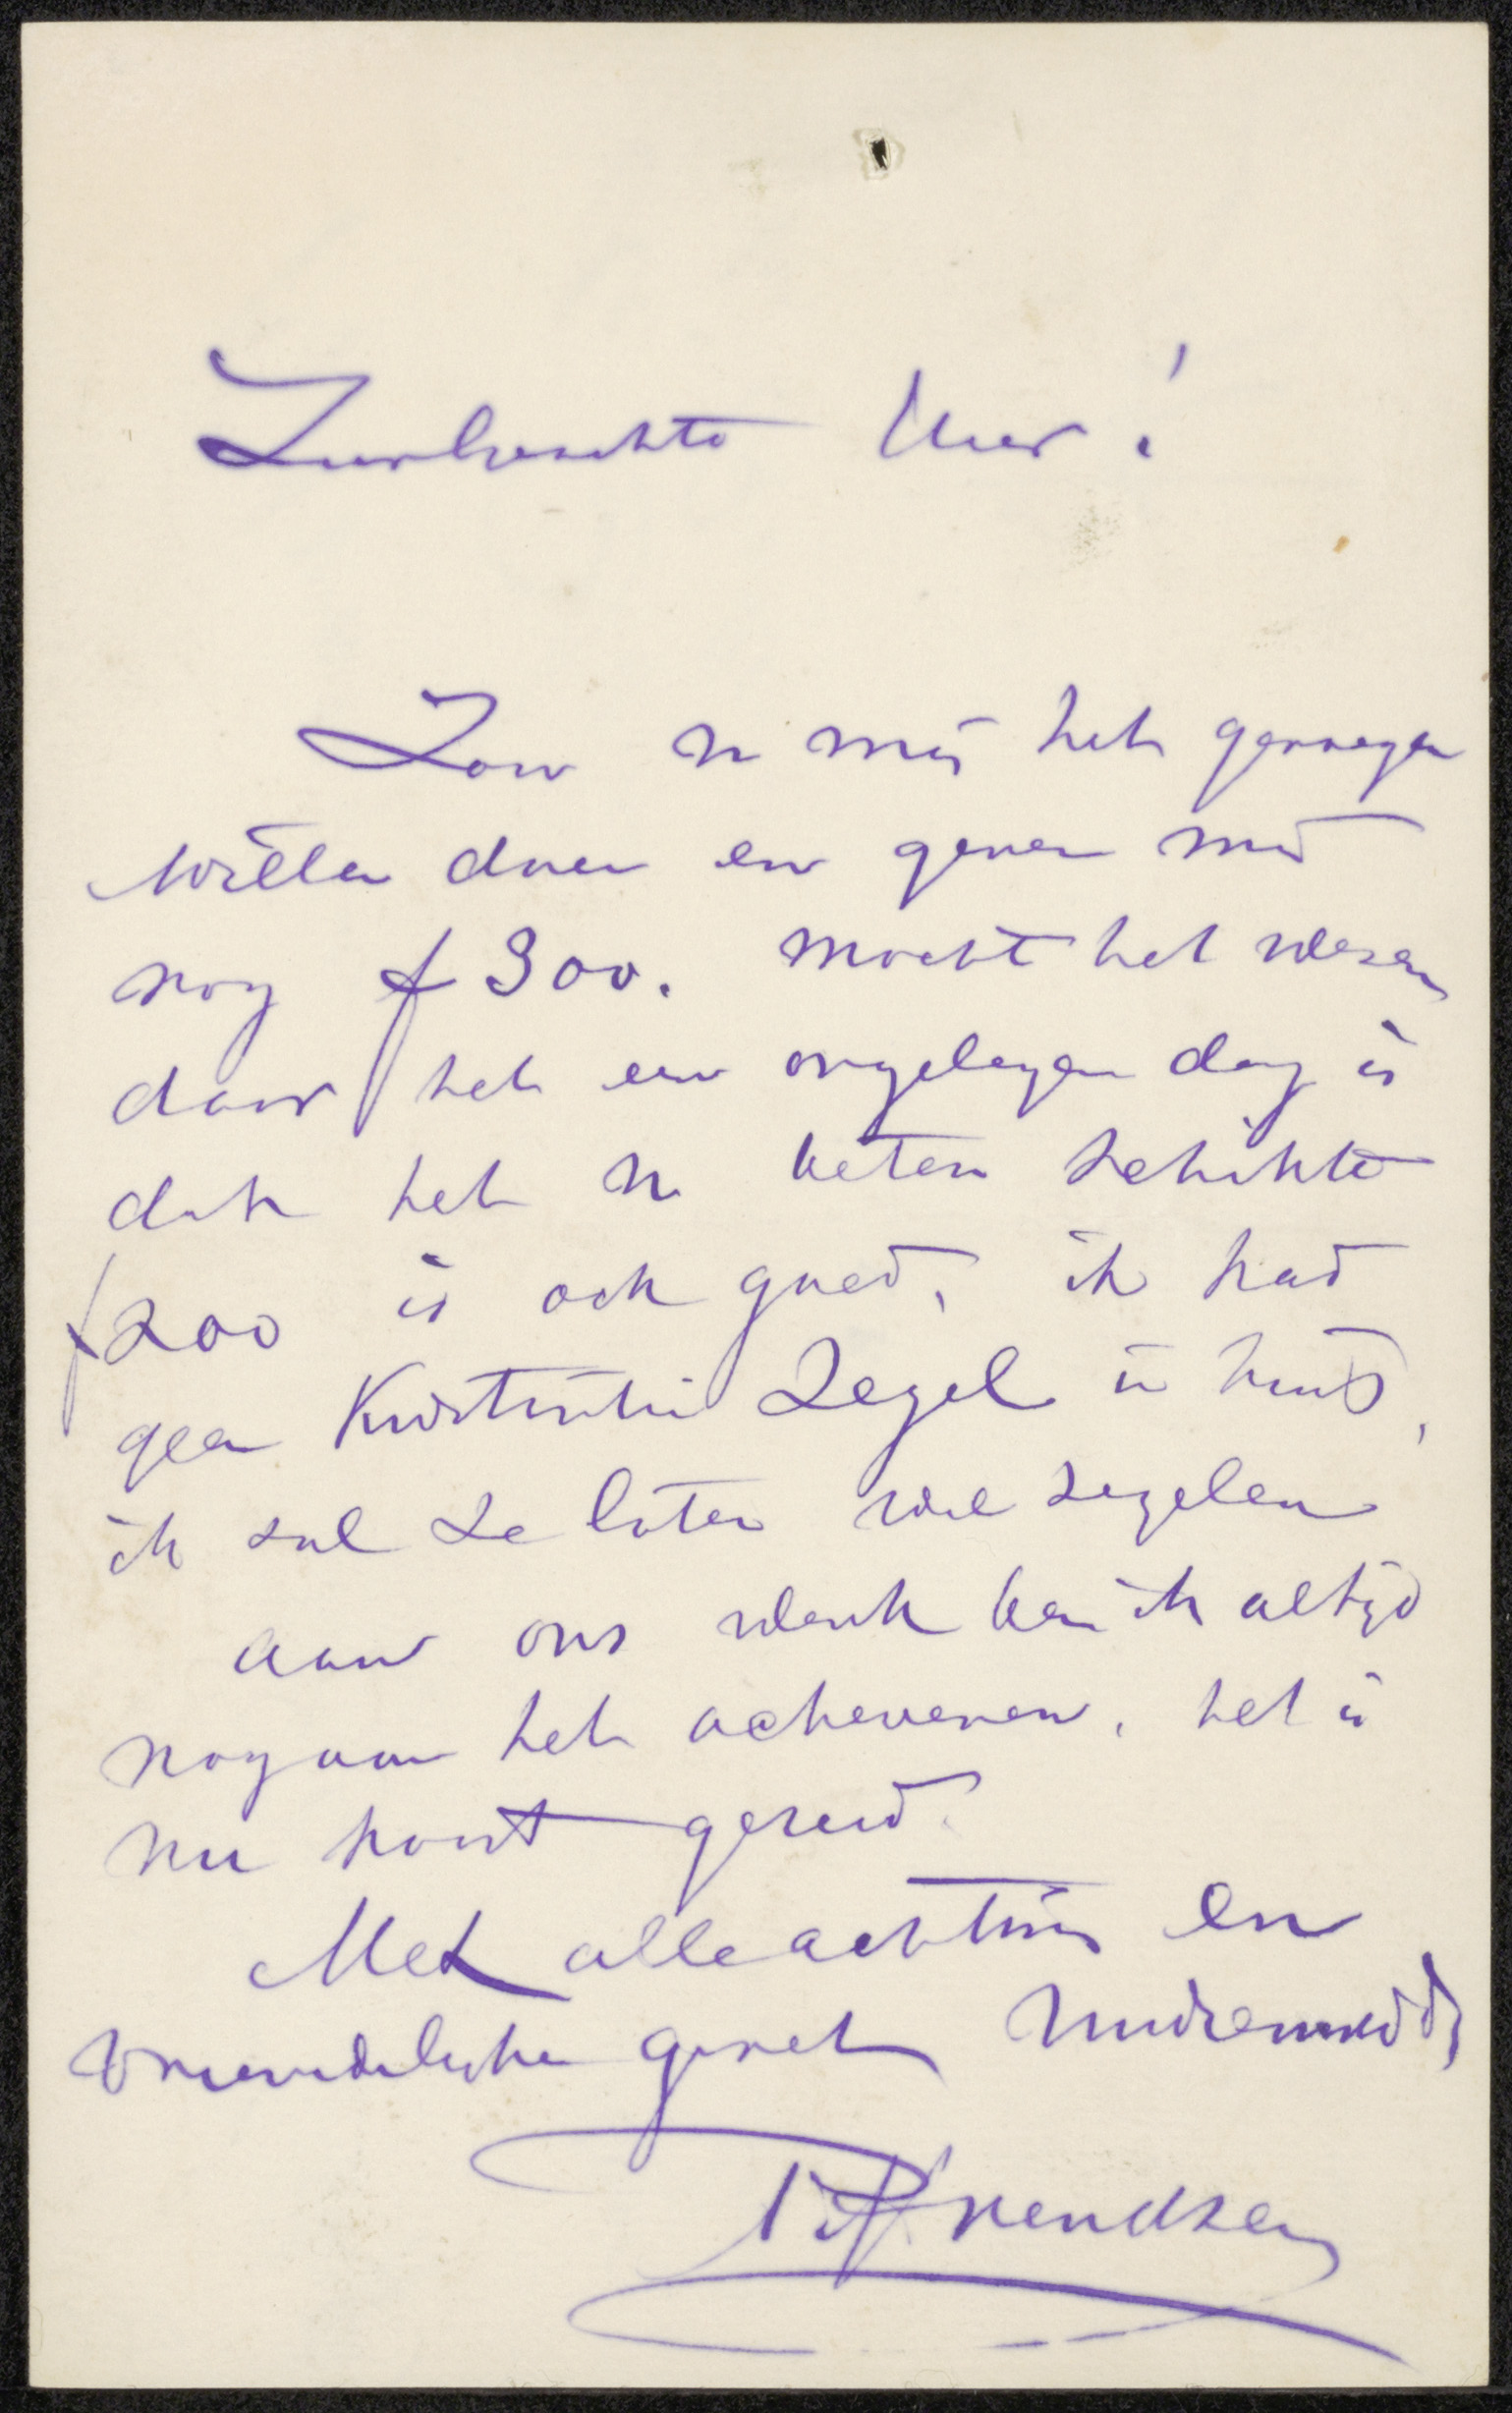 Zeerhaachte Heer!
Zou u mij het genoegen
willen doen en geven mij
nog f 300. mocht het wesen
daar het een ongelegen dag is
dat het u beter schikte
f200 is ook goed, ik had
geen Kwitantie Zegel in huis,
ik sal ze laten wel zegelen
aan ons werk ben ik altijd
nog aan het acheveren, het is
nu haast gereed.
Met alle achting en
vriendelijke groet
PArendzen